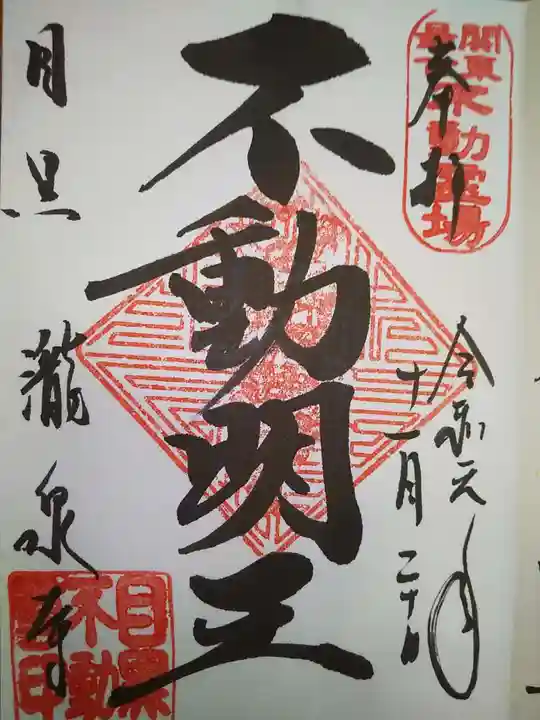 奉拝
関東最古不動霊場
令和元年
十一月二十日
不動明王
目黒 瀧泉寺
目黒不動